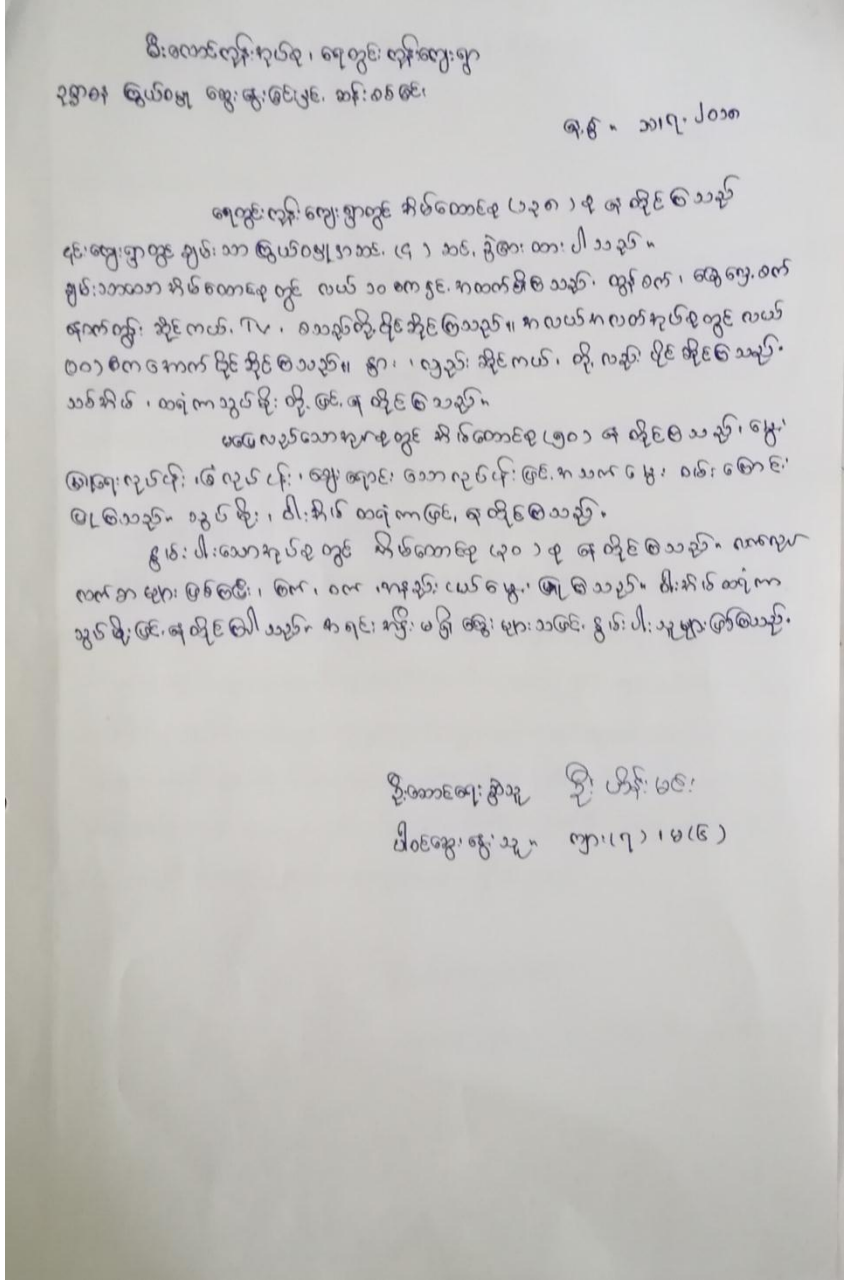 မီးလောင်ကုန်းအုပ်စု၊ ရေတွင်းကုန်းကျေးရွာ
ဥစ္စာဓန ကြွယ်ဝမှု ဆွေးနွေးခြင်းနှင့် ဆန်းစစ်ခြင်း
နေ့စွဲ။ ၁၁.၇.၂၀၁၈
ရေတွင်းကုန်းကျေးရွာတွင် အိမ်ထောင်စု (၁၃၈) စု နေထိုင်ကြသည်
၎င်းကျေးရွာတွင် ချမ်းသာကြွယ်ဝမှုအဆင့် (၄) ဆင့် ခွဲခြားထားပါသည်။
ချမ်းသာသော အိမ်ထောင်စုတွင် လယ် ၁၀ ဧကနှင့် အထက်ရှိကြသည်၊ ထွန်စက်၊ ခြွေလှေ့စက်
နောက်တွဲ၊ ဆိုင်ကယ်၊ TV၊ စသည်တို့ ပိုင်ဆိုင်ကြသည်။ အလယ်အလတ်အုပ်စုတွင် လယ်
(၁၀) ဧကအောက် ပိုင်ဆိုင်ကြသည်။ နွား၊ လှည်း ဆိုင်ကယ်၊ တို့လည်း ပိုင်ဆိုင်ကြသည်၊
သစ်အိမ်၊ ထရံကာသွပ်မိုး တို့ဖြင့် နေထိုင်ကြသည်။
မပြေလည်သောအုပ်စုတွင် အိမ်ထောင်စု (၅၀) နေထိုင်ကြသည်၊ မွေး
မြူရေးလုပ်ငန်း၊ ခြံလုပ်ငန်း၊ ဈေးရောင်းသောလုပ်ငန်းဖြင့် အသက်မွေးဝမ်းကျောင်း
ပြုကြသည်။ သွပ်မိုး၊ ဝါးအိမ် ထရံကာဖြင့် နေထိုင်ကြသည်။
နွမ်းပါးသောအုပ်စုတွင် အိမ်ထောင်စု (၃၀) စု နေထိုင်ကြသည်။
လက်စားများ ဖြစ်ကြပြီး၊ ကြက်၊ ဝက်၊ အနည်းငယ်မွေးမြူကြသည်။ ဝါးအိမ်ထရံကာ
သွပ်မိုးဖြင့် နေထိုင်ကြပါသည်။ အရင်းအနှီးမရှိ ကြွေးများသဖြင့် နွမ်းပါးသူများဖြစ်ကြသည်။
ဦးဆောင်ရေးဆွဲသူ ဦးဟိန်းမင်း
ပါဝင်ဆွေးနွေးသူ။ ကျား(၇)၊ မ(၆)